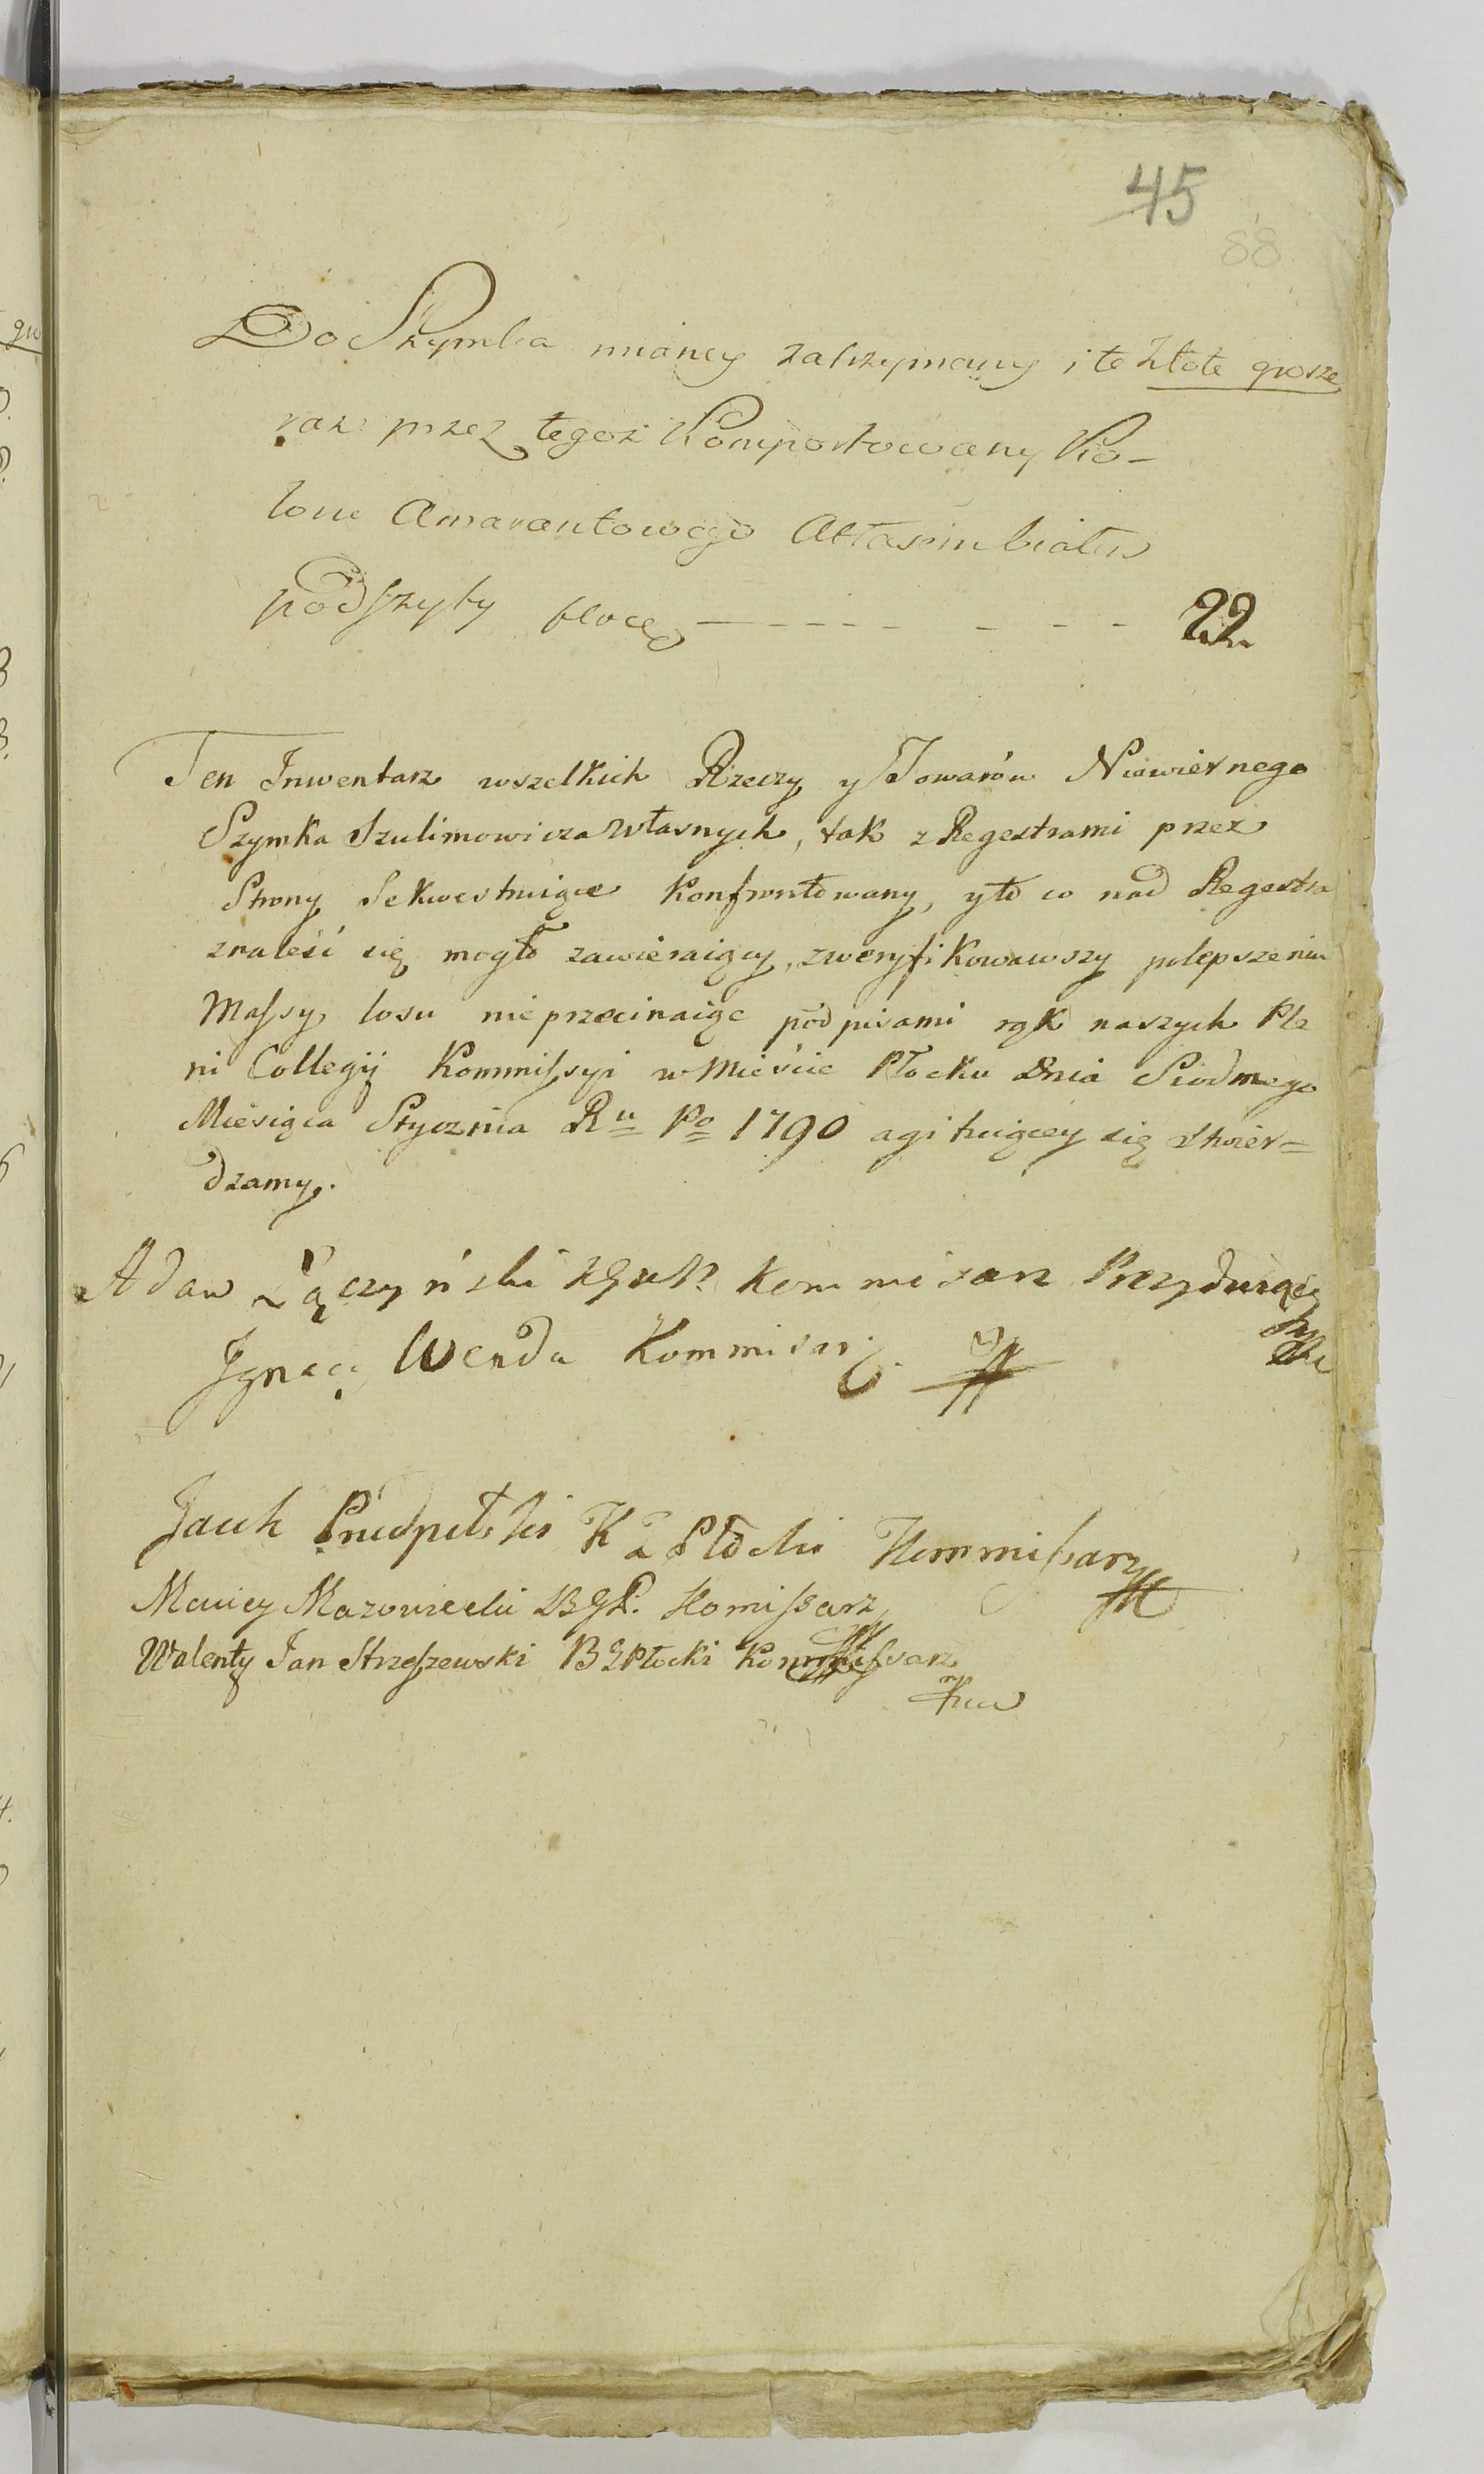 45
88
Do Szymka mianey zatrzymany i te złote grosze
raz przez tegoż komportowany Ko-
loru Amarantowego Atłasem białem
podszyty płacę - - - - - - - 22
Ten Inwentarz wszelkich Rzeczy y Towarów Niewiernego
Szymka Szulimowicza własnych, tak z Regestrami przez
Strony Sekwestruiące konfrontowany, y to co nad Regestra
znaleść się mogło zawieraiący, zweryfikowawszy polepszenia
Massy losu nieprzecinaiąc podpisami rąk naszych Ple
ni Collegij Kommissyi w Mieście Płocku Dnia Siodmego
Miesiąca Stycznia Ru Po 1790 agituiącey się stwier=
dzamy.
Adam Łączyński Kommisarz Prezyduiący
Ignacy Wenda Kommisarz
Jacek Płocki Kommissarz
Maciey Mazowiecki BGP. Komissarz
Walenty Jan Strzeszewski B G Płocki Kommissarz